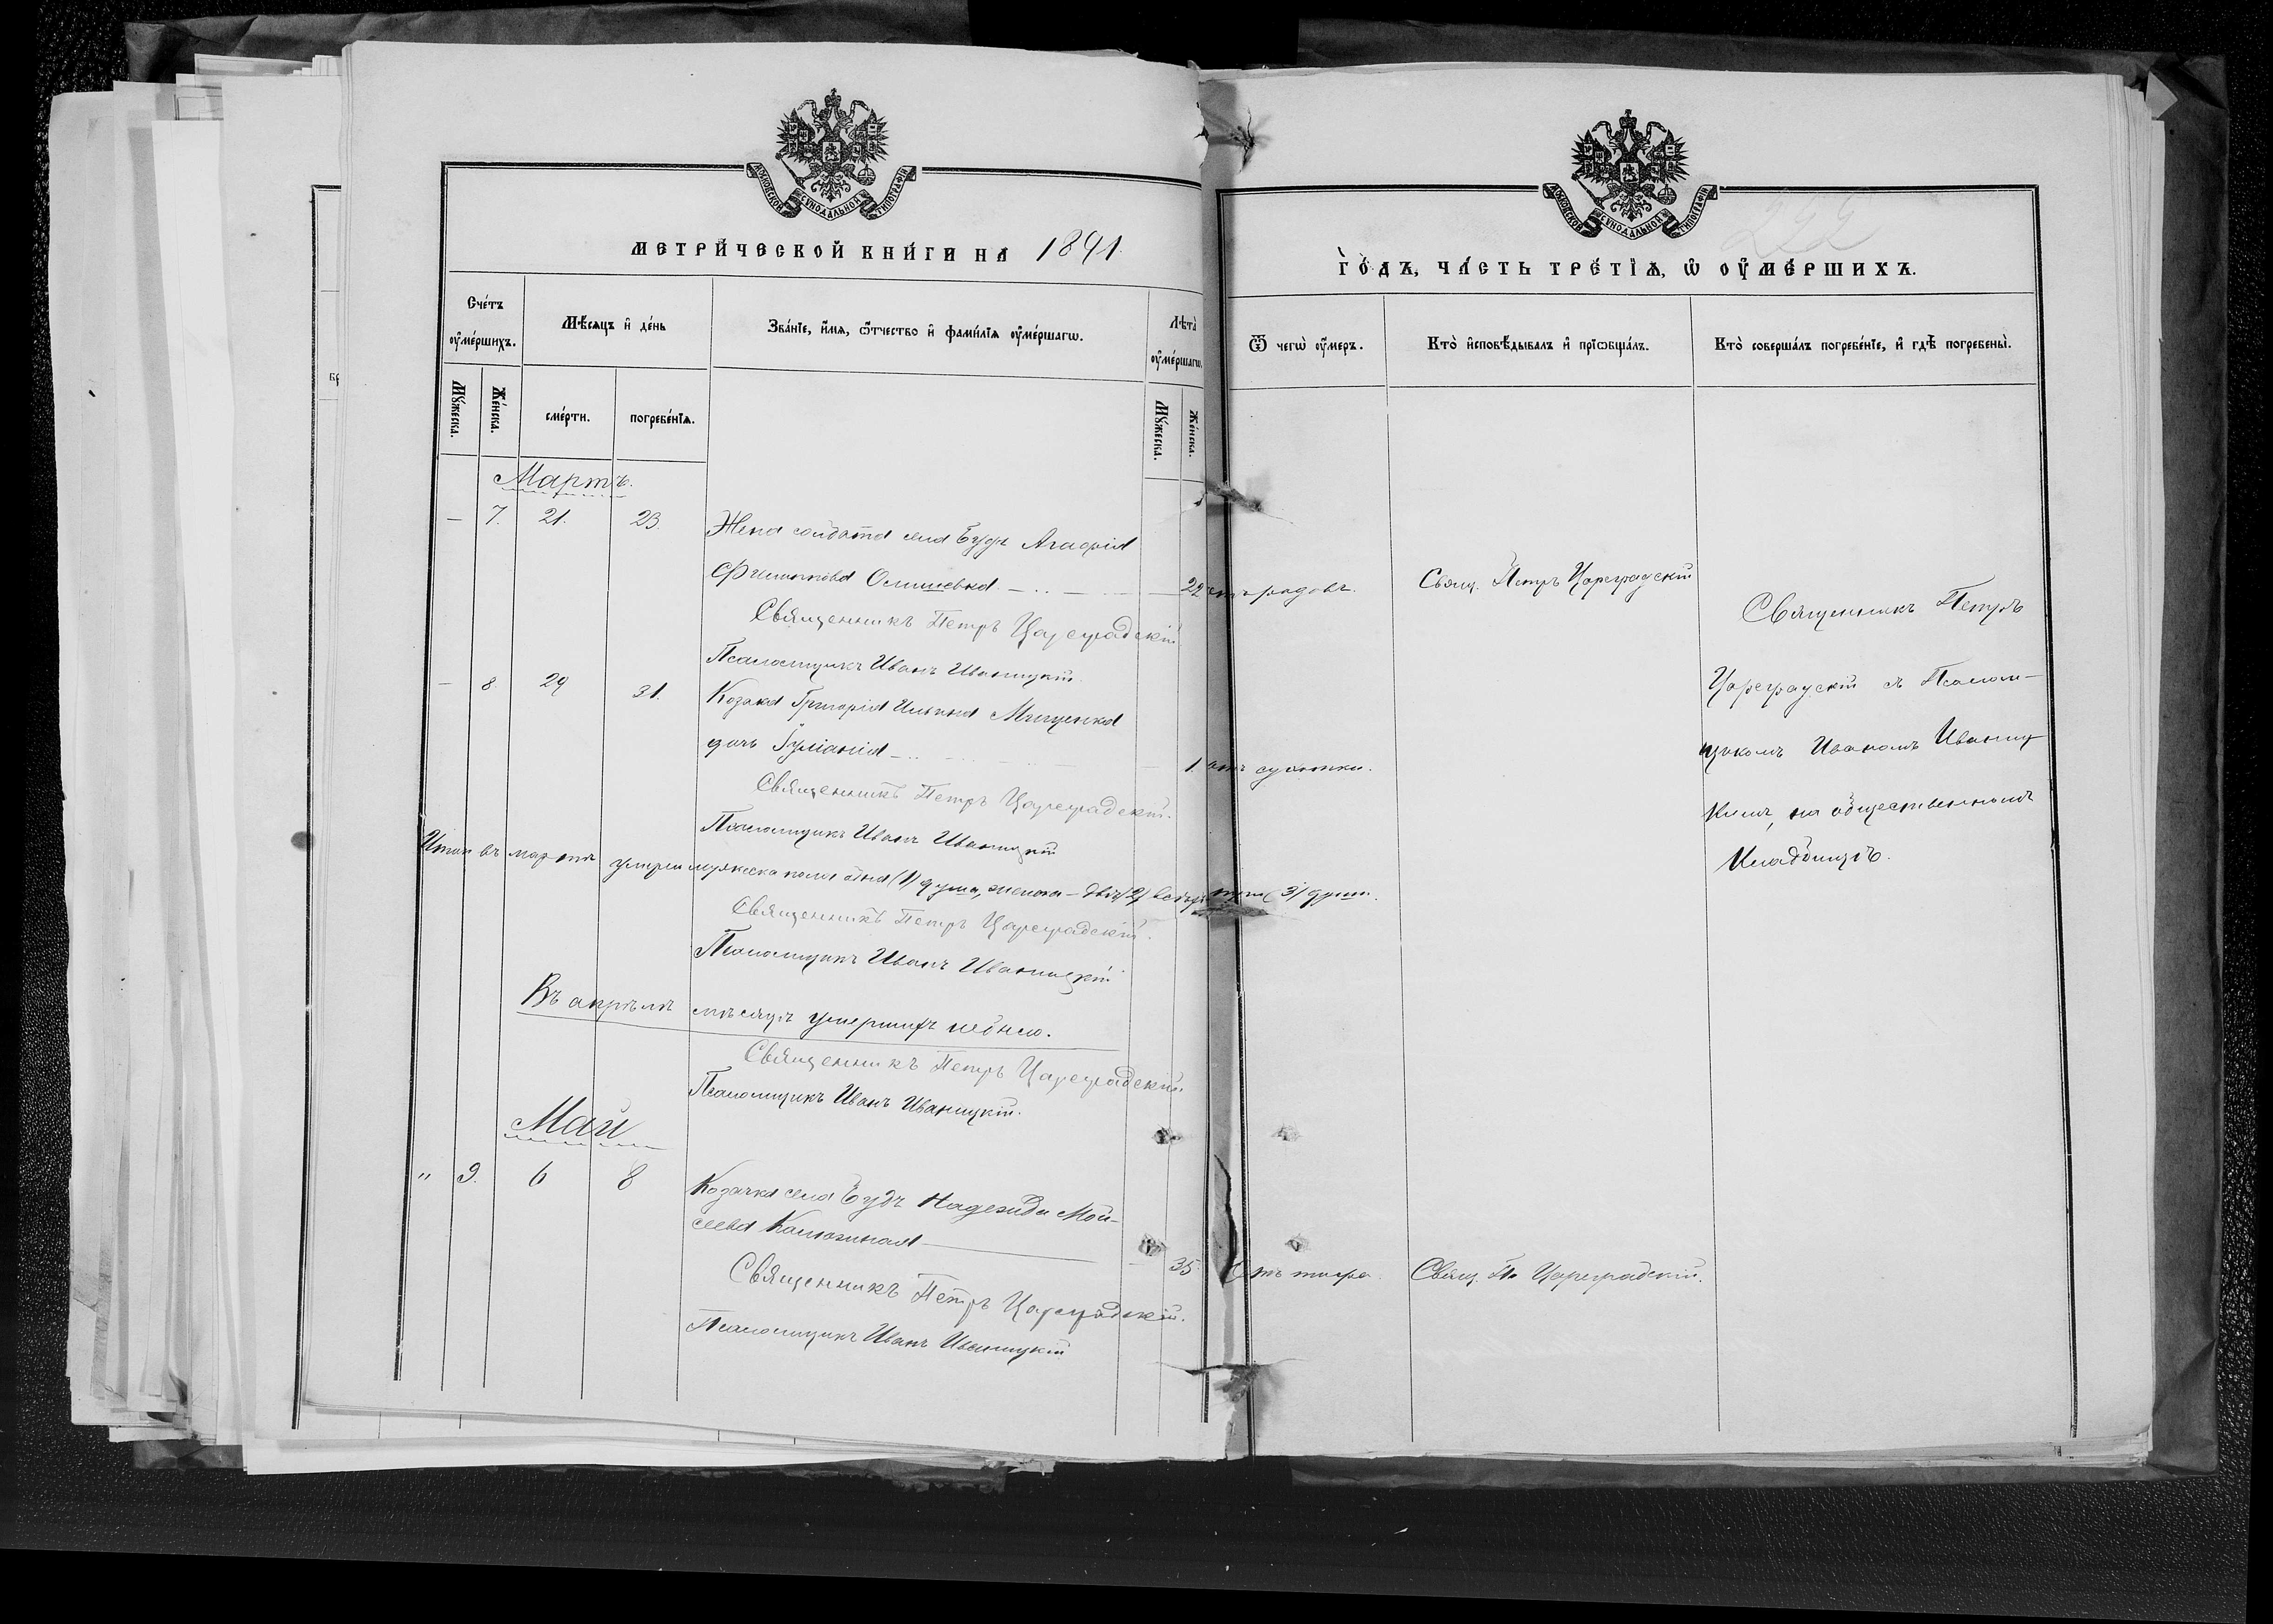 МОСКОВСКОЙ СѴНОДАЛЬНОЙ ТИПОГРАФІИ
МЕТРИ́ЧЕСКОЙ КНИ́ГИ НА 1891.
Сче́тъ ᲂу҆ме́ршихъ.
Мѣ́сяцъ и҆ де́нь
Зва́нїе, и҆́мя, ѻ҆́тчество и҆ фами́лїя ᲂу҆ме́ршагѡ.
Лѣта̀ ᲂу҆ме́ршагѡ.
Мꙋ́жеска.
Же́нска.
сме́рти.
погребе́нїѧ.
Мꙋ́жеска.
Же́нска.
Мартъ.
— 7. 21. 23. Жена солдата села Будъ Агафія
Филиппова Олишевка — 22
Священникъ Петръ Цареградскій
Псаломщикъ Иванъ Иваницкій
— 8. 29 31. Козака Григорія Ильина Мищенка
дочь Іуліанія — 1.
Священникъ Петръ Цареградскій.
Псаломщикъ Иванъ Иваницкій
Итого въ мартѣ умерли мужеска пола одна (1) душа, женска – двѣ (2) всего три (3) души.
Священникъ Петръ Цареградскій.
Псаломщикъ Иванъ Иваницкій
Въ апрѣлѣ мѣсяцѣ умершихъ не было.
Священникъ Петръ Цареградскій.
Псаломщикъ Иванъ Иваницкій.
Май
" 9. 6 8 Козачка села Будъ Надежда Мой-
сеева — 35.
Священникъ Петръ Цареградскій.
Псаломщикъ Иванъ Иваницкій
МОСКОВСКОЙ СѴНОДАЛЬНОЙ ТИПОГРАФІИ
ГО́ДЪ, ЧА́СТЬ ТРЕ́ТЇѦ, Ѡ҆ ОУ҆МЕ́РШИХЪ.
Ѿ чегѡ̀ ᲂу҆́меръ.
Кто̀ и҆сповѣ́дывалъ и҆ прїѡбща́лъ.
Кто̀ соверша́лъ погребе́нїе, и҆ гдѣ̀ погребены̀.
отъ родовъ.
Свящ. Петръ Цареградскій
Священникъ Петръ
Цареградскій съ Псалом-
щикомъ Иваномъ Иваниц-
кимъ, на общественномъ
кладбищѣ.
отъ сухотки.
Отъ тифа.
Свящ. П. Цареградскій.